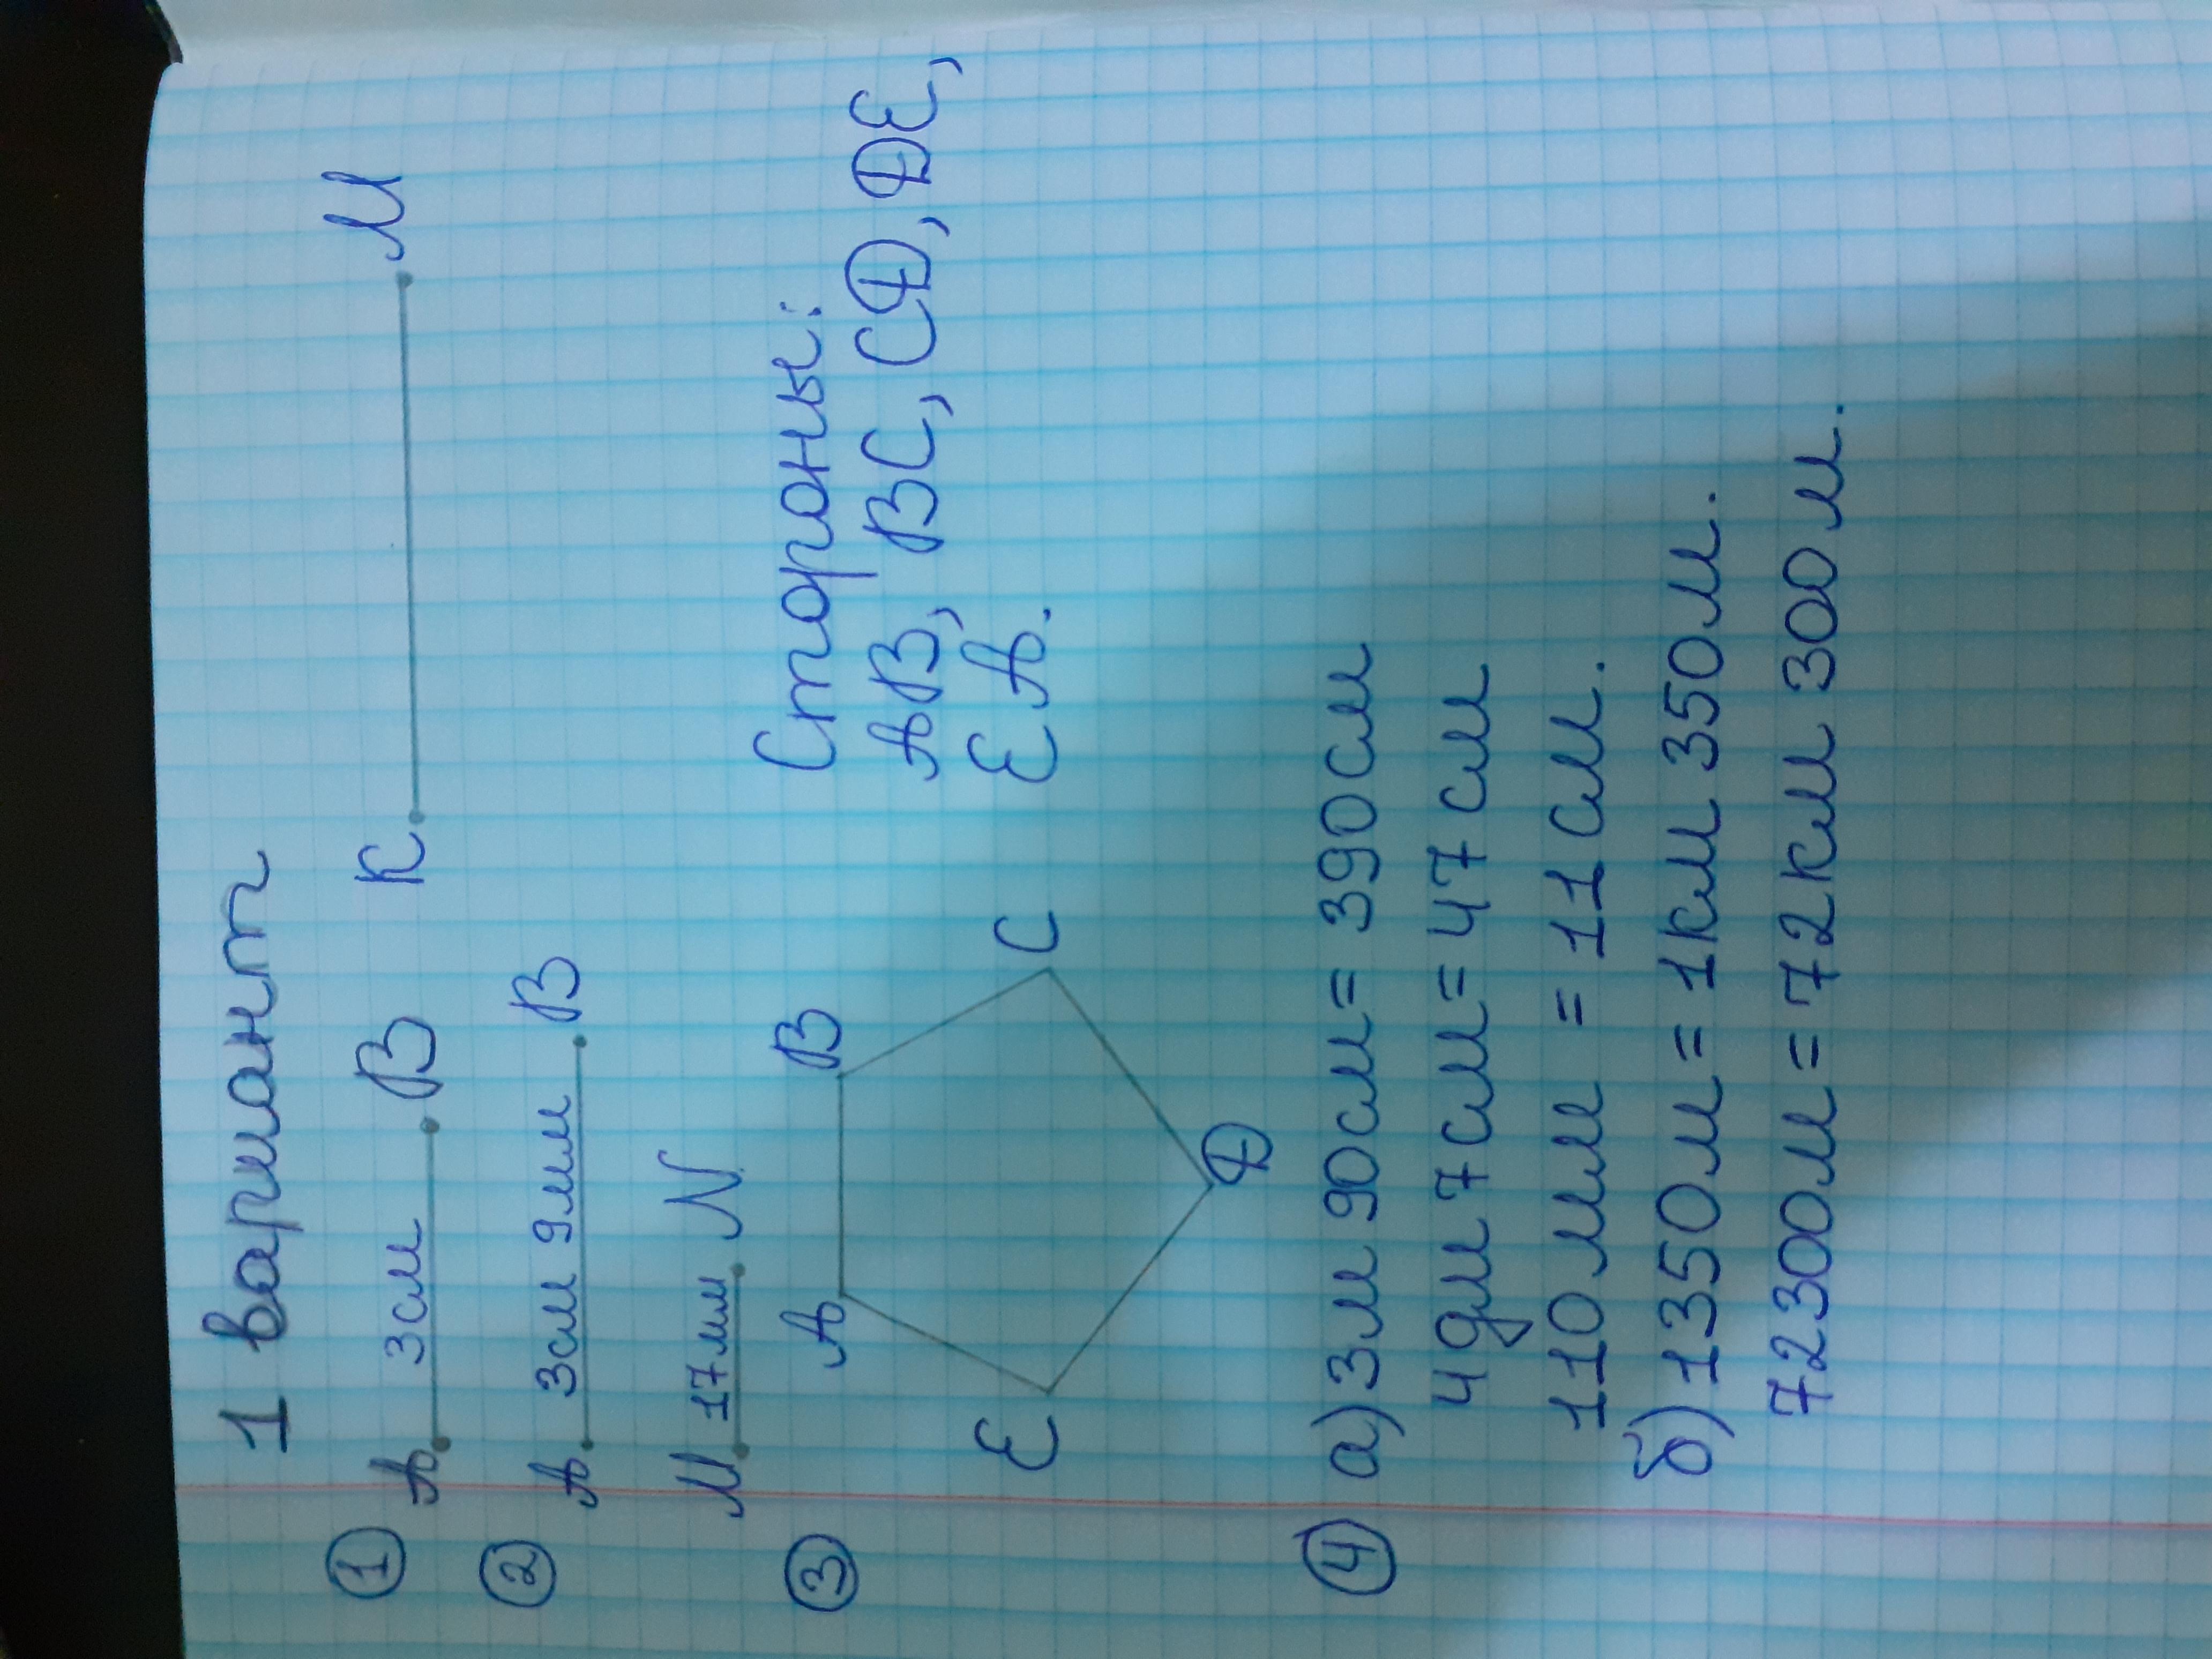 1 вариант
① А 3см В К М
② А 3см 9мм В
М 17мм N
③ А В С D Е
Стороны:
АВ, ВС, СD, DE,
ЕА.
④ а) 3м 90см = 390см
4дм 7см = 47см
110мм = 11см.
б) 1350м = 1км 350м.
72300м = 72км 300м.